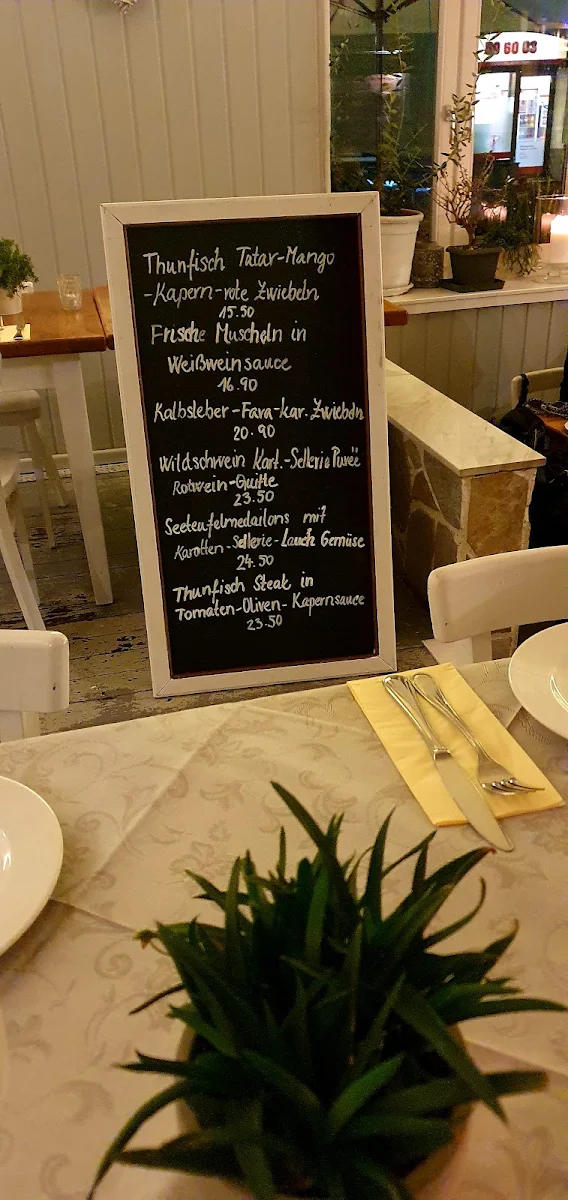 60 03
Thunfisch Tatar-Mango
-Kapern-rote Zwiebeln
15.50
Frische Muscheln in
Weißweinsauce
16.90
Kalbsleber-Fava-kar. Zwiebeln
20.90
Wildschwein Kart.-Sellerie Pureè
Rotwein-Quitte
23.50
Seeteufelmedailons mit
Karotten-Sellerie-Lauch Gemüse
24.50
Thunfisch Steak in
Tomaten-Oliven-Kapernsauce
23.50